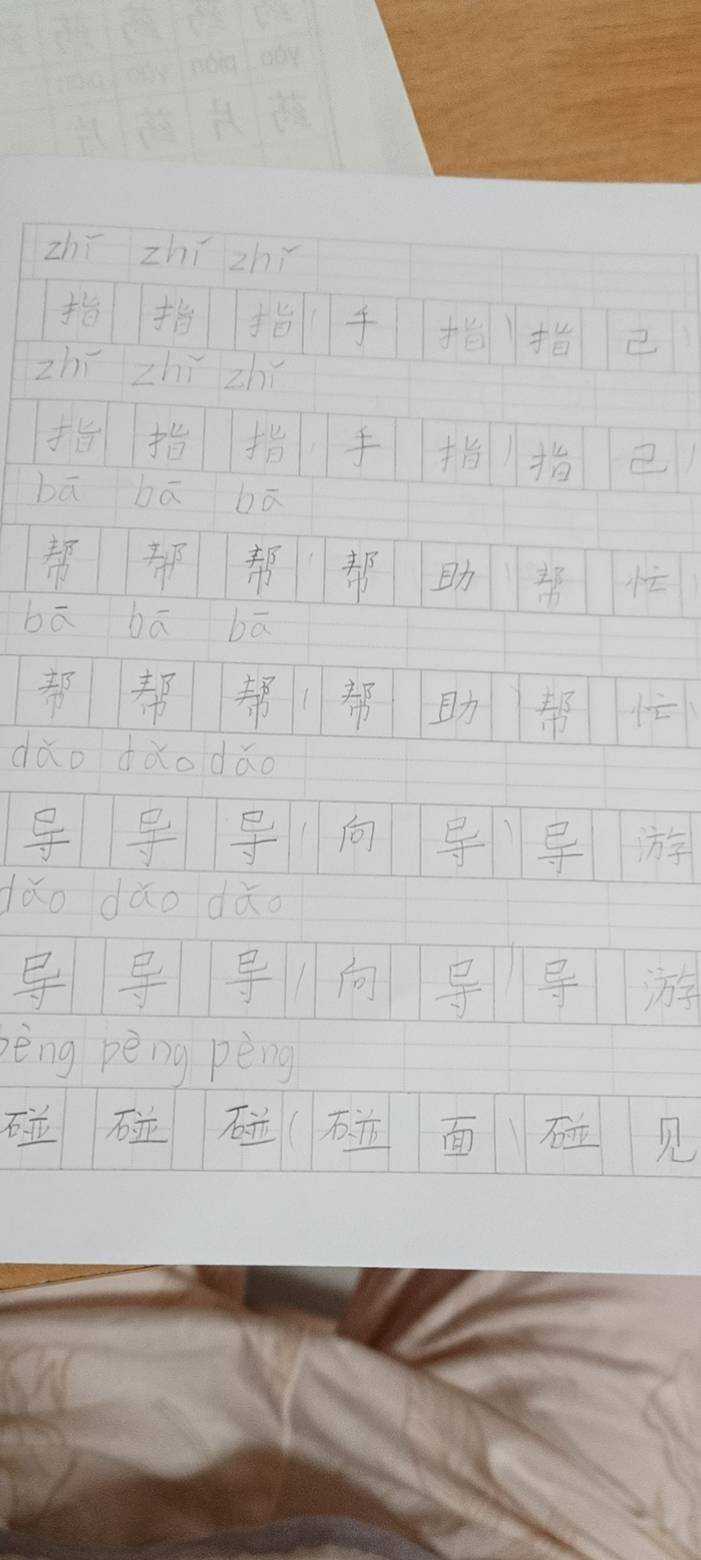 zhǐ zhǐ zhǐ
指 指 指 ( 手 指 ) 指 己 )
zhǐ zhǐ zhǐ
指 指 指 ( 手 指 ) 指 己 )
bā bā bā
帮 帮 帮 ( 帮 助 ) 帮 忙 )
bā bā bā
帮 帮 帮 ( 帮 助 ) 帮 忙 )
dǎo dǎo dǎo
导 导 导 ( 向 导 ) 导 游
dǎo dǎo dǎo
导 导 导 ( 向 导 ) 导 游
pèng pèng pèng
碰 碰 碰 ( 碰 面 ) 碰 见